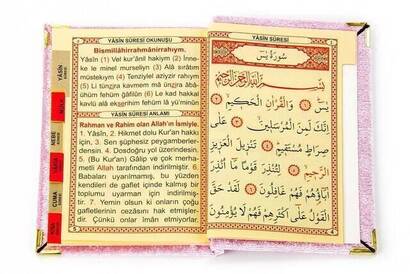 YÂSİN SÛRESİ OKUNUŞU
Bismillâhirrahmânirrahıym.
Yâsîn (1) Vel kur'ânil hakiym (2) İnne-
ke le minel murseliyn (3) Alâ sırâtım
müstekıym (4) Tenziylel aziyzir rahıym
(5) Li tünzira kavmem mâ ünzira âbâ-
ühüm fehüm ğâfilûn (6) Le kad hakkal
kavlü alâ ekserihim fehüm lâ yü'minûn
YÂSİN SÛRESİ ANLAMI
Rahman ve Rahim olan Allah'ın İsmiyle.
1. Yâsîn, 2. Hikmet dolu Kur'an hakkı
için, 3. Sen şüphesiz peygamberler-
densin. 4. Dosdoğru yol üzerindesin.
5. (Bu Kur'an) Gâlip ve çok merha-
metli Allah tarafından indirilmiştir. 6.
Babaları uyarılmamış, bu yüzden
kendileri de gaflet içinde kalmış bir
toplumu uyarman için indirilmiş-
tir. 7. Yemin olsun ki onların çoğu
gafletlerinin cezasını hak etmişler-
dir. Çünkü onlar îman etmiyorlar.
YÂSİN
NEBE
CUMA
YÂSİN SÛRESİ
سُورَةُ يٰسٓ
بِسْمِ اللهِ الرَّحْمٰنِ الرَّحِيمِ
يٰسٓ ﴿١﴾ وَالْقُرْاٰنِ الْحَكِيمِ ﴿٢﴾
اِنَّكَ لَمِنَ الْمُرْسَلِينَ ﴿٣﴾ عَلٰى
صِرَاطٍ مُسْتَقِيمٍ ﴿٤﴾ تَنْزِيلَ الْعَزِيزِ
الرَّحِيمِ ﴿٥﴾ لِتُنْذِرَ قَوْمًا مَٓا اُنْذِرَ
اٰبَٓاؤُهُمْ فَهُمْ غَافِلُونَ ﴿٦﴾ لَقَدْ حَقَّ
الْقَوْلُ عَلٰٓى اَكْثَرِهِمْ فَهُمْ لَا يُؤْمِنُونَ